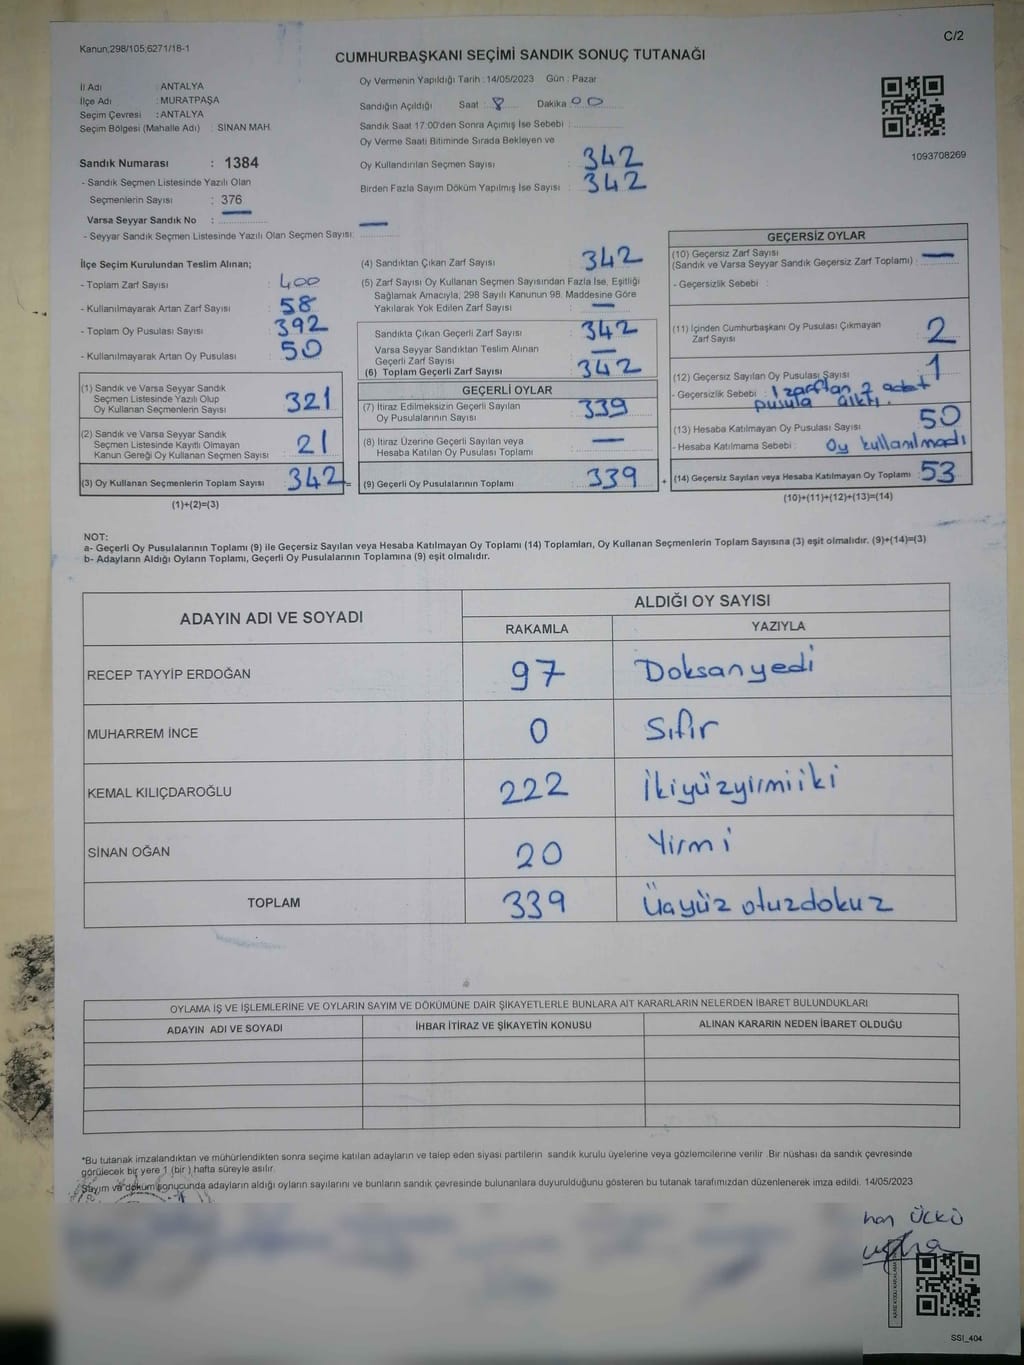 Kanun,298/105;6271/18-1
C/2
CUMHURBAŞKANI SEÇİMİ SANDIK SONUÇ TUTANAĞI
İl Adı : ANTALYA
İlçe Adı : MURATPAŞA
Seçim Çevresi : ANTALYA
Seçim Bölgesi (Mahalle Adı) : SİNAN MAH.
Sandık Numarası : 1384
- Sandık Seçmen Listesinde Yazılı Olan
Seçmenlerin Sayısı : 376
Varsa Seyyar Sandık No : —
- Seyyar Sandık Seçmen Listesinde Yazılı Olan Seçmen Sayısı: —
Oy Vermenin Yapıldığı Tarih : 14/05/2023 Gün : Pazar
Sandığın Açıldığı Saat : 8 Dakika 00
Sandık Saat 17:00'den Sonra Açımış İse Sebebi :
Oy Verme Saati Bitiminde Sırada Bekleyen ve
Oy Kullandırılan Seçmen Sayısı : 342
Birden Fazla Sayım Döküm Yapılmış İse Sayısı : 342
1093708269
İlçe Seçim Kurulundan Teslim Alınan;
- Toplam Zarf Sayısı : 400
- Kullanılmayarak Artan Zarf Sayısı : 58
- Toplam Oy Pusulası Sayısı : 392
- Kullanılmayarak Artan Oy Pusulası : 50
(1) Sandık ve Varsa Seyyar Sandık
Seçmen Listesinde Yazılı Olup
Oy Kullanan Seçmenlerin Sayısı : 321
(2) Sandık ve Varsa Seyyar Sandık
Seçmen Listesinde Kayıtlı Olmayan
Kanun Gereği Oy Kullanan Seçmen Sayısı : 21
(3) Oy Kullanan Seçmenlerin Toplam Sayısı : 342 =
(1)+(2)=(3)
(4) Sandıktan Çıkan Zarf Sayısı : 342
(5) Zarf Sayısı Oy Kullanan Seçmen Sayısından Fazla İse, Eşitliği
Sağlamak Amacıyla; 298 Sayılı Kanunun 98. Maddesine Göre
Yakılarak Yok Edilen Zarf Sayısı : —
Sandıkta Çıkan Geçerli Zarf Sayısı : 342
Varsa Seyyar Sandıktan Teslim Alınan
Geçerli Zarf Sayısı : —
(6) Toplam Geçerli Zarf Sayısı : 342
GEÇERLİ OYLAR
(7) İtiraz Edilmeksizin Geçerli Sayılan
Oy Pusulalarının Sayısı : 339
(8) İtiraz Üzerine Geçerli Sayılan veya
Hesaba Katılan Oy Pusulası Toplamı : —
(9) Geçerli Oy Pusulalarının Toplamı : 339 +
GEÇERSİZ OYLAR
(10) Geçersiz Zarf Sayısı
(Sandık ve Varsa Seyyar Sandık Geçersiz Zarf Toplamı) : —
- Geçersizlik Sebebi :
(11) İçinden Cumhurbaşkanı Oy Pusulası Çıkmayan
Zarf Sayısı : 2
(12) Geçersiz Sayılan Oy Pusulası Sayısı : 1
- Geçersizlik Sebebi : 1 zarftan 2 adet
pusula çıktı.
(13) Hesaba Katılmayan Oy Pusulası Sayısı : 50
- Hesaba Katılmama Sebebi : Oy kullanılmadı
(14) Geçersiz Sayılan veya Hesaba Katılmayan Oy Toplamı : 53
(10)+(11)+(12)+(13)=(14)
NOT:
a- Geçerli Oy Pusulalarının Toplamı (9) ile Geçersiz Sayılan veya Hesaba Katılmayan Oy Toplamı (14) Toplamları, Oy Kullanan Seçmenlerin Toplam Sayısına (3) eşit olmalıdır. (9)+(14)=(3)
b- Adayların Aldığı Oyların Toplamı, Geçerli Oy Pusulalarının Toplamına (9) eşit olmalıdır.
ADAYIN ADI VE SOYADI
ALDIĞI OY SAYISI
RAKAMLA YAZIYLA
RECEP TAYYİP ERDOĞAN 97 Doksanyedi
MUHARREM İNCE 0 Sıfır
KEMAL KILIÇDAROĞLU 222 İkiyüzyirmiiki
SİNAN OĞAN 20 Yirmi
TOPLAM 339 Üçyüz otuzdokuz
OYLAMA İŞ VE İŞLEMLERİNE VE OYLARIN SAYIM VE DÖKÜMÜNE DAİR ŞİKAYETLERLE BUNLARA AİT KARARLARIN NELERDEN İBARET BULUNDUKLARI
ADAYIN ADI VE SOYADI İHBAR İTİRAZ VE ŞİKAYETİN KONUSU ALINAN KARARIN NEDEN İBARET OLDUĞU
*Bu tutanak imzalandıktan ve mühürlendikten sonra seçime katılan adayların ve talep eden siyasi partilerin sandık kurulu üyelerine veya gözlemcilerine verilir .Bir nüshası da sandık çevresinde
görülecek bir yere 1 (bir ) hafta süreyle asılır.
Sayım ve döküm sonucunda adayların aldığı oyların sayılarını ve bunların sandık çevresinde bulunanlara duyurulduğunu gösteren bu tutanak tarafımızdan düzenlenerek imza edildi. 14/05/2023
han ÜLKÜ
SSI_404